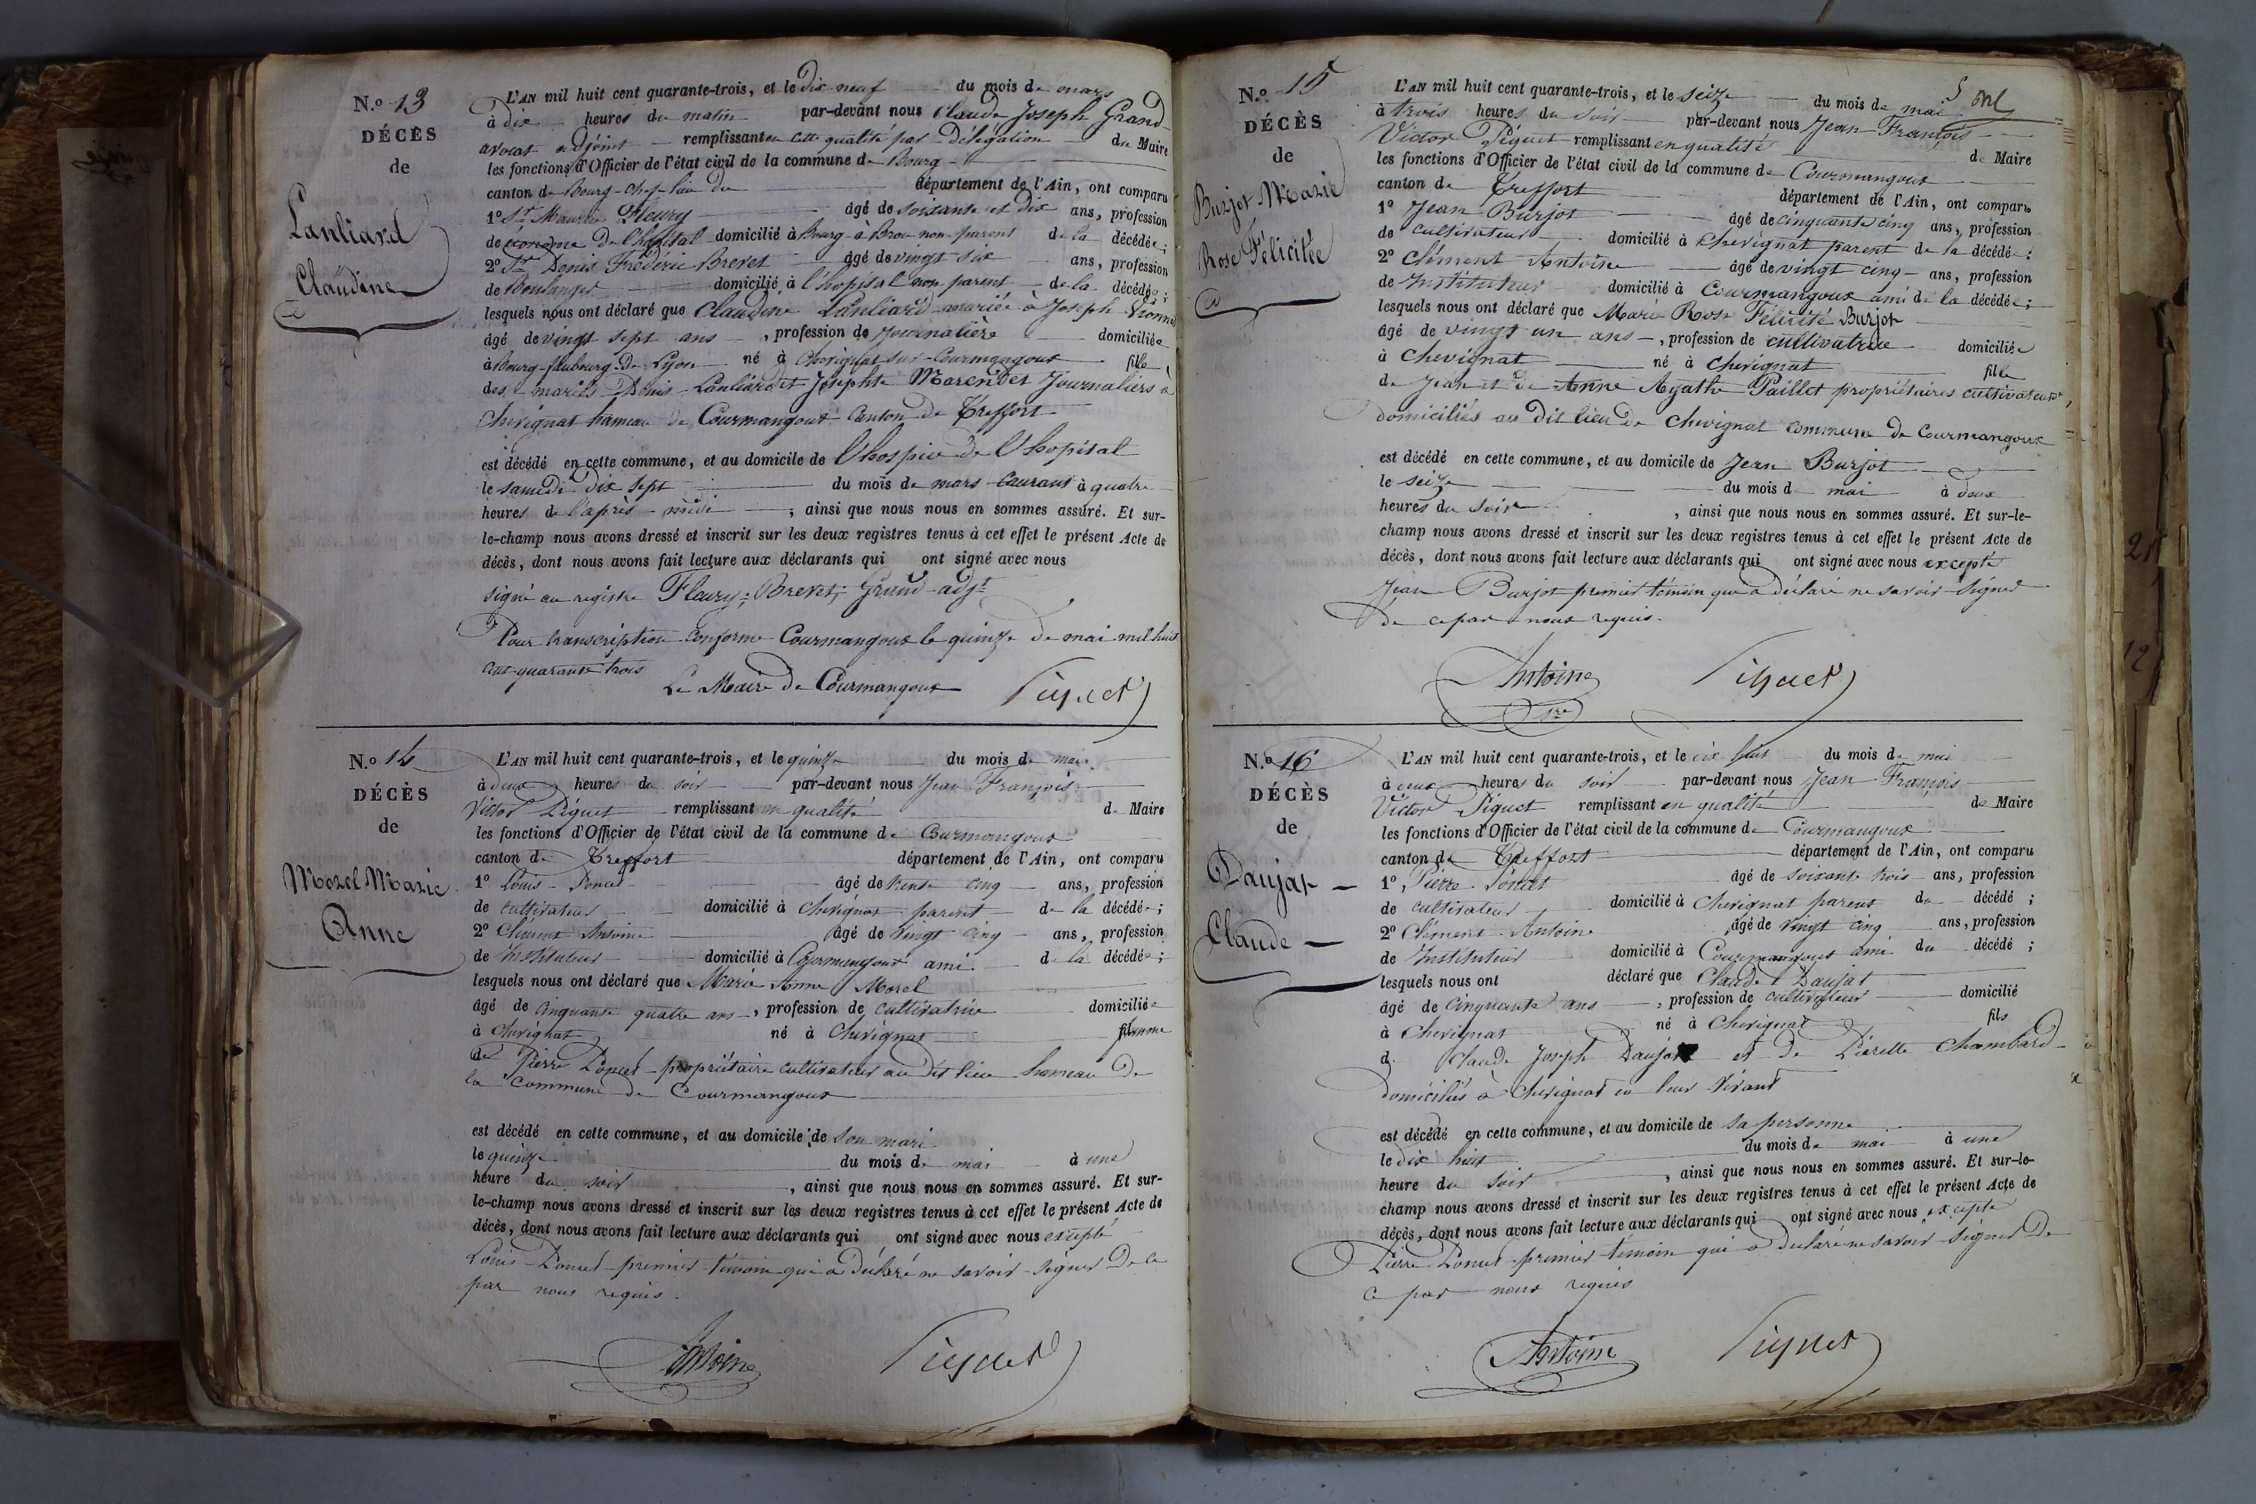 N.º 13
DÉCÈS
de
Lanliard
Claudine
L'AN mil huit cent quarante-trois, et le dix neuf du mois de mars
à dix heures du matin par-devant nous Claude Joseph Grand
avocat adjoint remplissant en cette qualité par délégation du Maire
les fonctions d'Officier de l'état civil de la commune de Bourg
canton de Bourg chef-lieu du département de l'Ain, ont comparu
1º St Maurice Fleury âgé de soixante et dix ans, profession
de économe de l'hôpital domicilié à Bourg à Brou non parent de la décédée;
2º St Denis Frédéric Brevet âgé de vingt six ans, profession
de Boulanger domicilié à l'hopital non parent de la décédée;
lesquels nous ont déclaré que Claudine Lanliard mariée à Joseph
âgé de vingt sept ans, profession de journalière domiciliée
à Bourg faubourg de Lyon né à Chevignat sur Courmangoux fille
des mariés Denis Lanliard et Josephte Marender journaliers à
Chevignat hameau de Courmangoux canton de Treffort
est décédé en cette commune, et au domicile de l'hospice de l'hopital
le samedi dix sept du mois de mars courant à quatre
heures de l'après midi ; ainsi que nous nous en sommes assuré. Et sur-
le-champ nous avons dressé et inscrit sur les deux registres tenus à cet effet le présent Acte de
décès, dont nous avons fait lecture aux déclarants qui ont signé avec nous
signé au registre Fleury; Brevet; Grand adjt
Pour transcription conforme Courmangoux le quinze de mai mil huit
cent quarante trois
Le Maire de Courmangoux Piquet
N.º 14
DÉCÈS
de
Morel Marie
Anne
L'AN mil huit cent quarante-trois, et le quinze du mois de mai
à deux heures du soir par-devant nous Jean François
Victor Piquet remplissant en qualité de Maire
les fonctions d'Officier de l'état civil de la commune de Courmangoux
canton de Treffort département de l'Ain, ont comparu
1º Louis Poncet âgé de trente cinq ans, profession
de cultivateur domicilié à Chevignat parent de la décédée;
2º Clément Antoine âgé de vingt cinq ans, profession
de Instituteur domicilié à Courmangoux ami de la décédée;
lesquels nous ont déclaré que Marie Anne Morel
âgé de cinquante quatre ans, profession de cultivatrice domiciliée
à Chevignat né à Chevignat femme
de Pierre Poncet propriétaire cultivateur au dit lieu hameau de
la commune de Courmangoux
est décédé en cette commune, et au domicile de son mari
le quinze du mois de mai à une
heure du soir, ainsi que nous nous en sommes assuré. Et sur-
le-champ nous avons dressé et inscrit sur les deux registres tenus à cet effet le présent Acte de
décès, dont nous avons fait lecture aux déclarants qui ont signé avec nous excepté
Louis Poncet premier témoin qui a déclaré ne savoir signer de ce
par nous requis.
Antoine Piquet
N.º 15
DÉCÈS
de
Burjot Marie
Rose Félicitée
L'AN mil huit cent quarante-trois, et le seize du mois de mai
à trois heures du soir par-devant nous Jean François
Victor Piquet remplissant en qualité de Maire
les fonctions d'Officier de l'état civil de la commune de Courmangoux
canton de Treffort département de l'Ain, ont comparu
1º Jean Burjot âgé de cinquante cinq ans, profession
de cultivateur domicilié à Chevignat parent de la décédée;
2º Clément Antoine âgé de vingt cinq ans, profession
de Instituteur domicilié à Courmangoux ami de la décédée;
lesquels nous ont déclaré que Marie Rose Félicité Burjot
âgé de vingt un ans, profession de cultivatrice domiciliée
à Chevignat né à Chevignat fille
de Jean et de Anne Agathe Paillet propriétaires cultivateurs,
domiciliés au dit lieu de Chevignat commune de Courmangoux
est décédé en cette commune, et au domicile de Jean Burjot
le seize du mois de mai à deux
heures du soir, ainsi que nous nous en sommes assuré. Et sur-le-
champ nous avons dressé et inscrit sur les deux registres tenus à cet effet le présent Acte de
décès, dont nous avons fait lecture aux déclarants qui ont signé avec nous excepté
Jean Burjot premier témoin qui a déclaré ne savoir signer
de ce par nous requis.
Antoine Piquet
N.º 16
DÉCÈS
de
Daujat
Claude
L'AN mil huit cent quarante-trois, et le dix huit du mois de mai
à deux heures du soir par-devant nous Jean François
Victor Piquet remplissant en qualité de Maire
les fonctions d'Officier de l'état civil de la commune de Courmangoux
canton de Treffort département de l'Ain, ont comparu
1º Pierre Poncet âgé de soixante trois ans, profession
de cultivateur domicilié à Chevignat parent du décédé;
2º Clément Antoine âgé de vingt cinq ans, profession
de Instituteur domicilié à Courmangoux ami du décédé;
lesquels nous ont déclaré que Claude Daujat
âgé de cinquante ans, profession de cultivateur domicilié
à Chevignat né à Chevignat fils
de Claude Joseph Daujat et de Pierette Chambard
domiciliés à Chevignat en leur vivant
est décédé en cette commune, et au domicile de sa personne
le dix huit du mois de mai à une
heure du soir, ainsi que nous nous en sommes assuré. Et sur-le-
champ nous avons dressé et inscrit sur les deux registres tenus à cet effet le présent Acte de
décès, dont nous avons fait lecture aux déclarants qui ont signé avec nous excepté
Pierre Poncet premier témoin qui a déclaré ne savoir signer de
ce par nous requis
Antoine Piquet